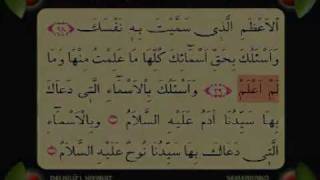 اَلْاَعْظَمِ الَّذِي سَمَّيْتَ بِهِ نَفْسَكَ ﴿٩٨﴾
وَاَسْئَلُكَ بِحَقِّ اَسْمَآئِكَ كُلِّهَا مَا عَلِمْتُ مِنْهَا وَمَا
لَمْ اَعْلَمْ ﴿٩٩﴾ وَاَسْئَلُكَ بِالْاَسْمَآءِ الَّتِي دَعَاكَ
بِهَا سَيِّدُنَا اٰدَمُ عَلَيْهِ السَّلَامُ وَبِالْاَسْمَآءِ
الَّتِي دَعَاكَ بِهَا سَيِّدُنَا نُوحٌ عَلَيْهِ السَّلَامُ